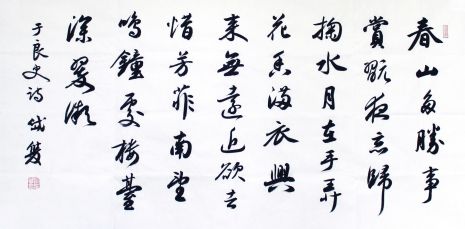 春山多勝事
賞翫夜忘歸
掬水月在手弄
花香滿衣興
來無遠近欲去
惜芳菲南望
鳴鐘處樓臺
深翠微
于良史詩